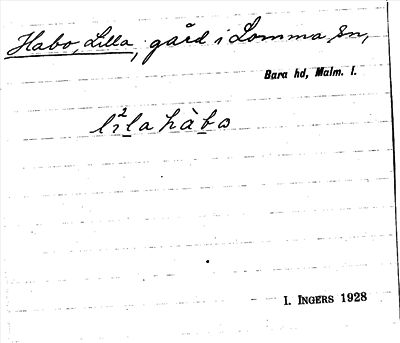 Habo, Lilla, gård i Lomma sn,
Bara hd, Malm. l.
li²la hàbo
I. INGERS 1928